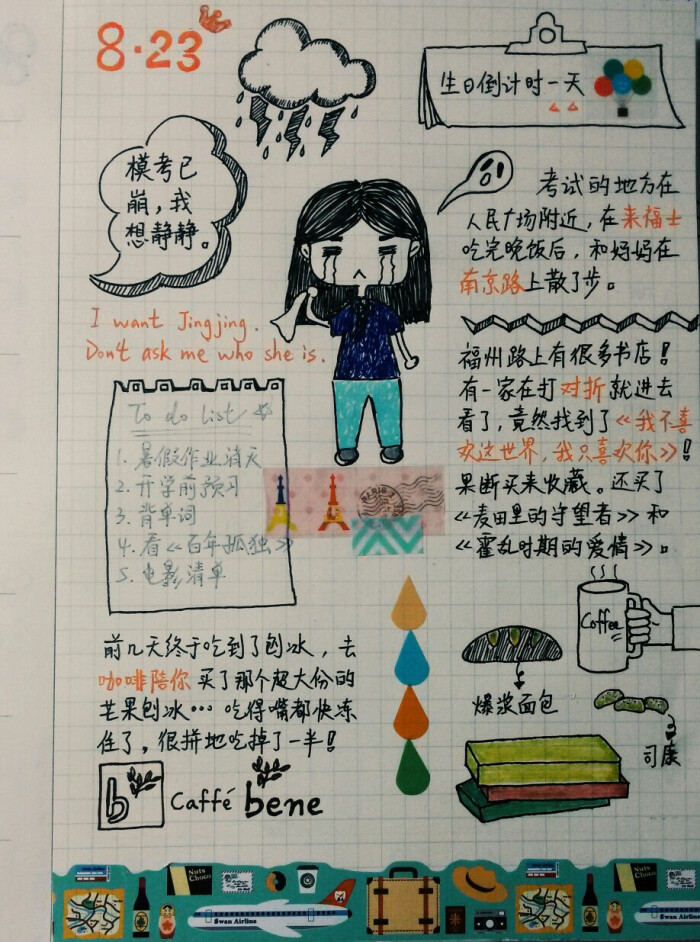 8·23
生日倒计时一天
模考已
崩，我
想静静。
I want Jingjing.
Don't ask me who she is.
考试的地方在
人民广场附近，在来福士
吃完晚饭后，和妈妈在
南京路上散了步。
福州路上有很多书店！
有一家在打对折就进去
看了，竟然找到了《我不喜
欢这世界，我只喜欢你》！
果断买来收藏。还买了
《麦田里的守望者》和
《霍乱时期的爱情》。
To do list
1. 暑假作业消灭
2. 开学前预习
3. 背单词
4. 看《百年孤独》
5. 电影清单
PARIS
前几天终于吃到了刨冰，去
咖啡陪你买了那个超大份的
芒果刨冰…吃得嘴都快冻
住了，很拼地吃掉了一半！
b Caffé bene
Coffee
爆浆面包
司康
Nuts
Choco
Swan Airline
Nuts
Choco
Swan Airline